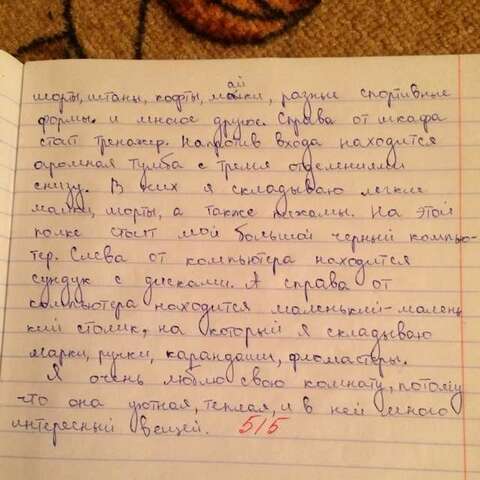 шорты, штаны, кофты, майки, разные спортивные
формы и многое другое. Справа от шкафа
стоит тренажер. Напротив входа находится
огромная тумба с тремя отделениями
снизу. В них я складываю легкие
майки, шорты, а также пижамы. На этой
полке стоит мой большой черный компью-
тер. Слева от компьютера находится
сундук с дисками. А справа от
компьютера находится маленький-малень
кий столик, на который я складываю
марки, ручки, карандаши, фломастеры.
Я очень люблю свою комнату, потому
что она уютная, теплая, и в ней много
интересный вещей. 5/5